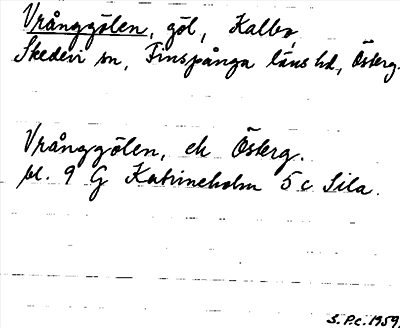 Vrånggölen, göl, Kalbo,
Skedevi sn, Finspånga läns hd, Österg.
Vrånggölen, ek Österg.
bl. 9 G Katrineholm 5 c Sila.
S.P.c. 1959.